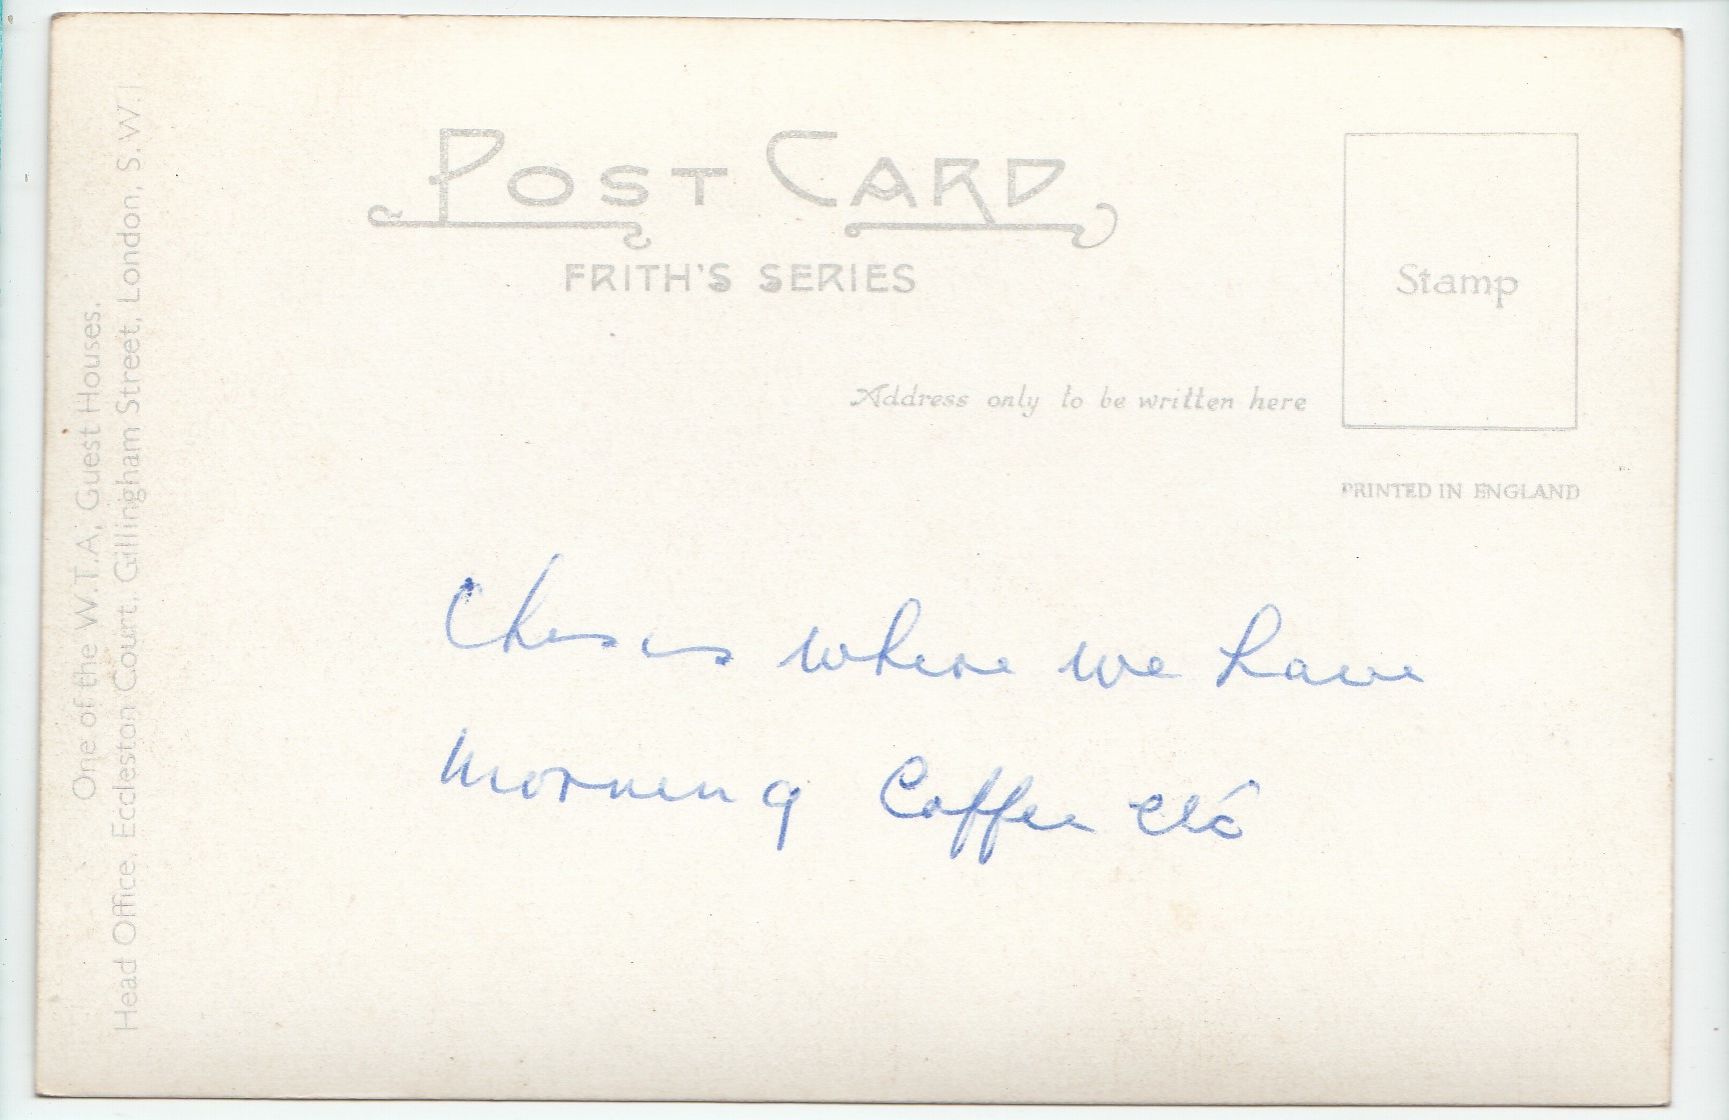 POST CARD
FRITH'S SERIES
Stamp
Address only to be written here
PRINTED IN ENGLAND
One of the W.T.A. Guest Houses.
Head Office, Eccleston Court, Gillingham Street, London, S.W.1.
where we have
Morning Coffee etc